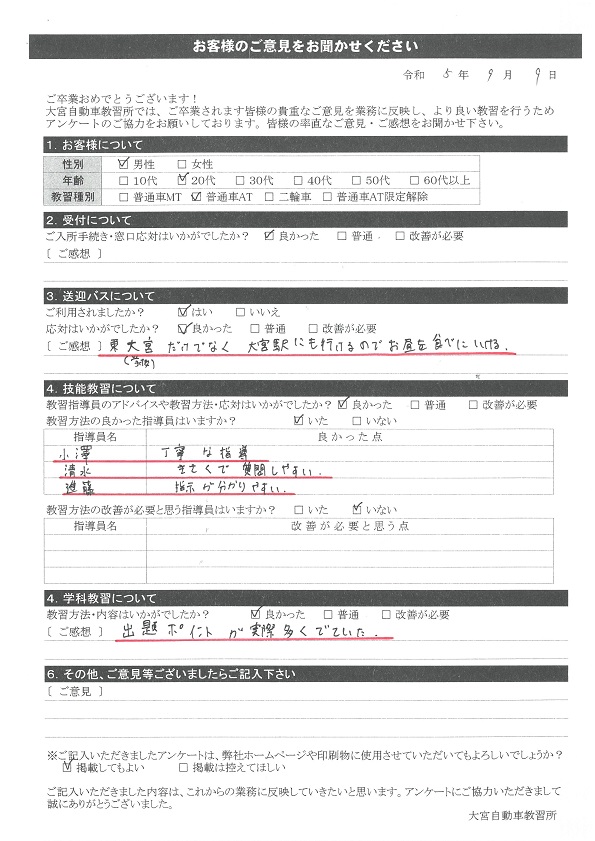 お客様のご意見をお聞かせください
令和 5 年 9 月 9 日
ご卒業おめでとうございます！
大宮自動車教習所では、ご卒業されます皆様の貴重なご意見を業務に反映し、より良い教習を行うため
アンケートのご協力をお願いしております。皆様の率直なご意見・ご感想をお聞かせ下さい。
1. お客様について
性別 ☑ 男性 □ 女性
年齢 □ 10代 ☑ 20代 □ 30代 □ 40代 □ 50代 □ 60代以上
教習種別 □ 普通車MT ☑ 普通車AT □ 二輪車 □ 普通車AT限定解除
2. 受付について
ご入所手続き・窓口応対はいかがでしたか？ ☑ 良かった □ 普通 □ 改善が必要
[ ご感想 ]
3. 送迎バスについて
ご利用されましたか？ ☑ はい □ いいえ
応対はいかがでしたか？ ☑ 良かった □ 普通 □ 改善が必要
[ ご感想 ] 東大宮 だけでなく 大宮駅にも行けるのでお昼を食べにいける.
4. 技能教習について
教習指導員のアドバイスや教習方法・応対はいかがでしたか？ ☑ 良かった □ 普通 □ 改善が必要
教習方法の良かった指導員はいますか？ ☑ いた □ いない
指導員名 良かった点
小澤 丁寧な指導
清水 きさくで質問しやすい.
進藤 指示が分かりやすい.
教習方法の改善が必要と思う指導員はいますか？ □ いた ☑ いない
指導員名 改善が必要と思う点
4. 学科教習について
教習方法・内容はいかがでしたか？ ☑ 良かった □ 普通 □ 改善が必要
[ ご感想 ] 出題ポイントが実際多くでていた.
6. その他、ご意見等ございましたらご記入下さい
[ ご意見 ]
※ご記入いただきましたアンケートは、弊社ホームページや印刷物に使用させていただいてもよろしいでしょうか？
☑ 掲載してもよい □ 掲載は控えてほしい
ご記入いただきました内容は、これからの業務に反映していきたいと思います。アンケートにご協力いただきまして
誠にありがとうございました。
大宮自動車教習所